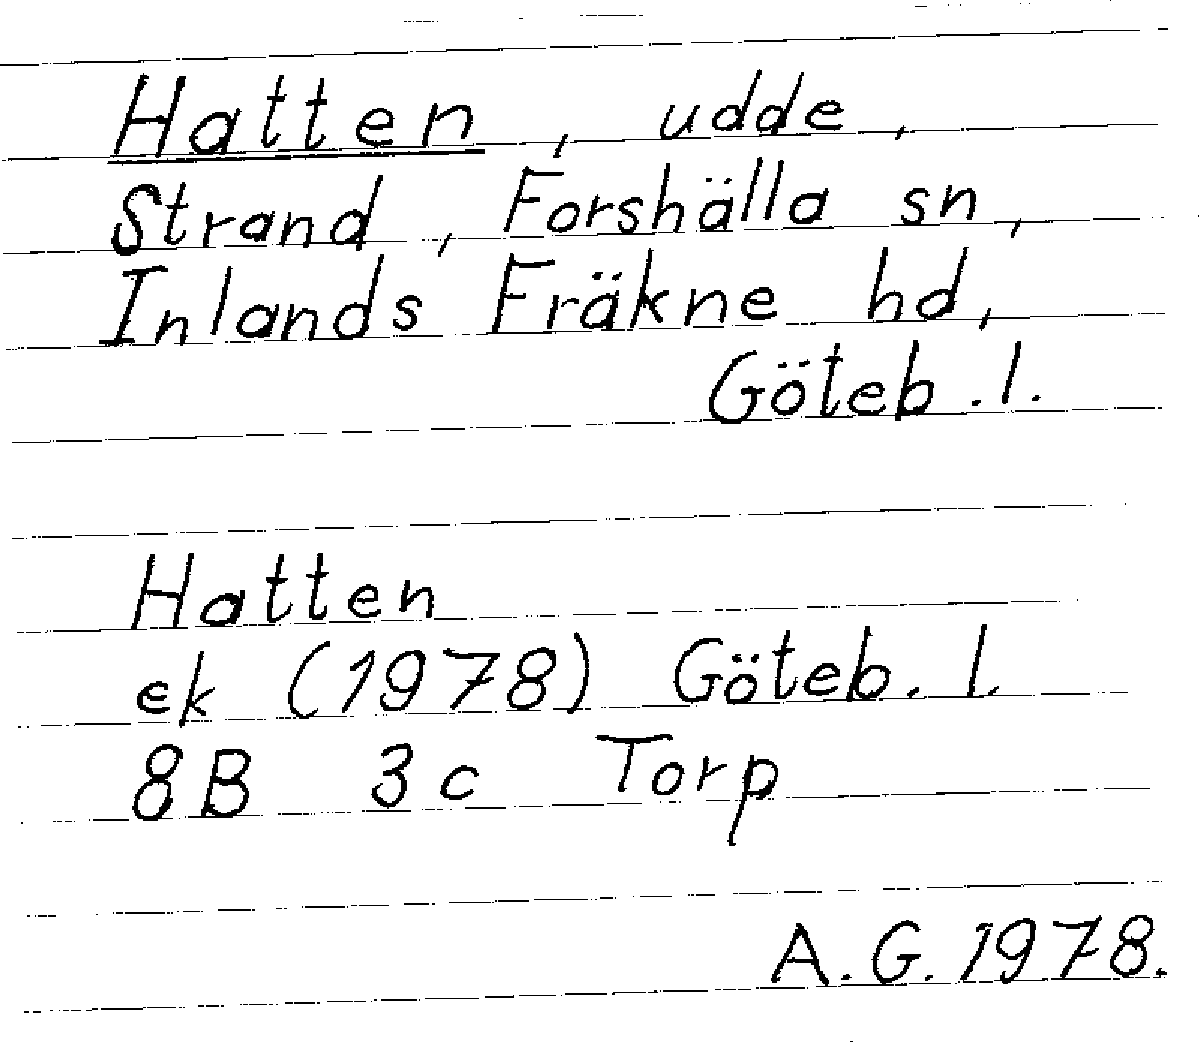 Hatten, udde,
Strand, Forshälla sn,
Inlands Fräkne hd,
Göteb. l.
Hatten
ek (1978) Göteb. l.
8B 3c Torp
A.G. 1978.